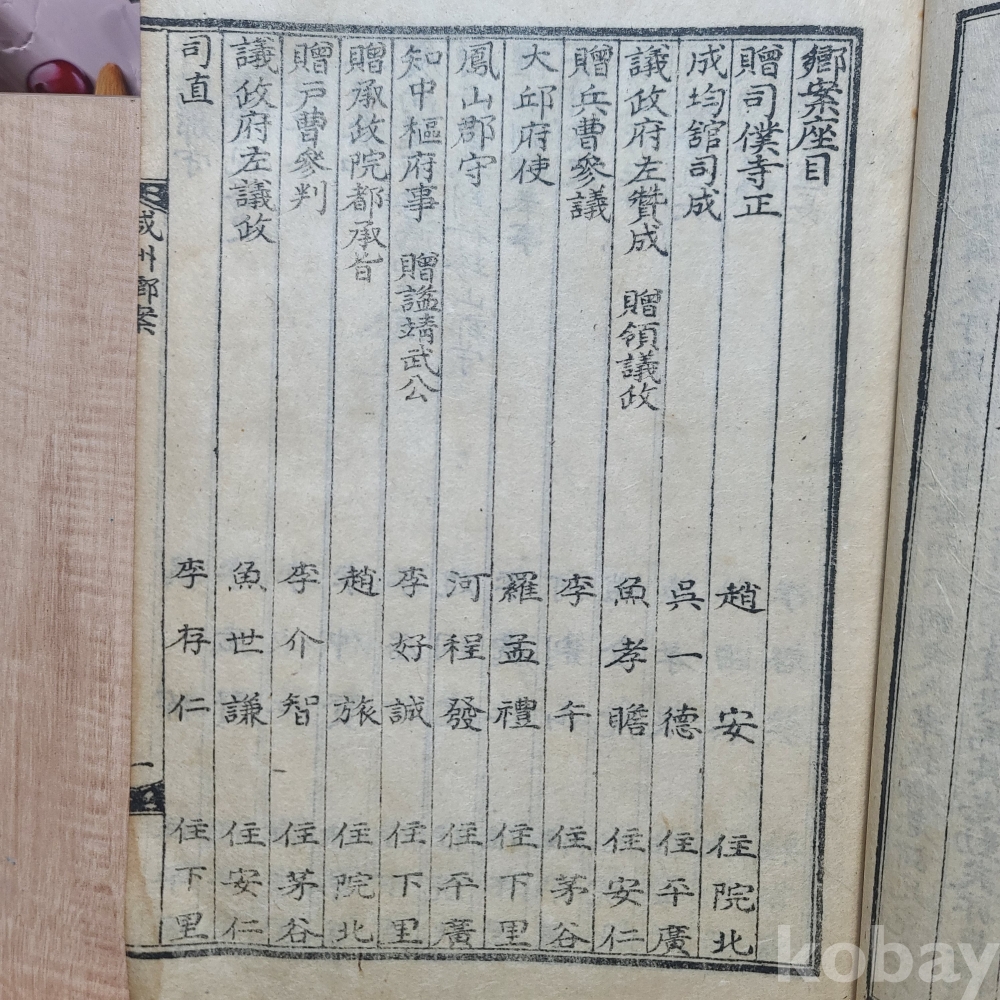 鄕案座目
贈司僕寺正 趙安 住院北
成均舘司成 吳一德 住平廣
議政府左贊成 贈領議政 魚孝瞻 住安仁
贈兵曹參議 李午 住茅谷
大邱府使 羅孟禮 住下里
鳳山郡守 河程發 住平廣
知中樞府事 贈謚靖武公 李好誠 住下里
贈承政院都承旨 趙旅 住院北
贈戶曹參判 李介智 住茅谷
議政府左議政 魚世謙 住安仁
司直 李存仁 住下里
咸州鄕案
一
kobay